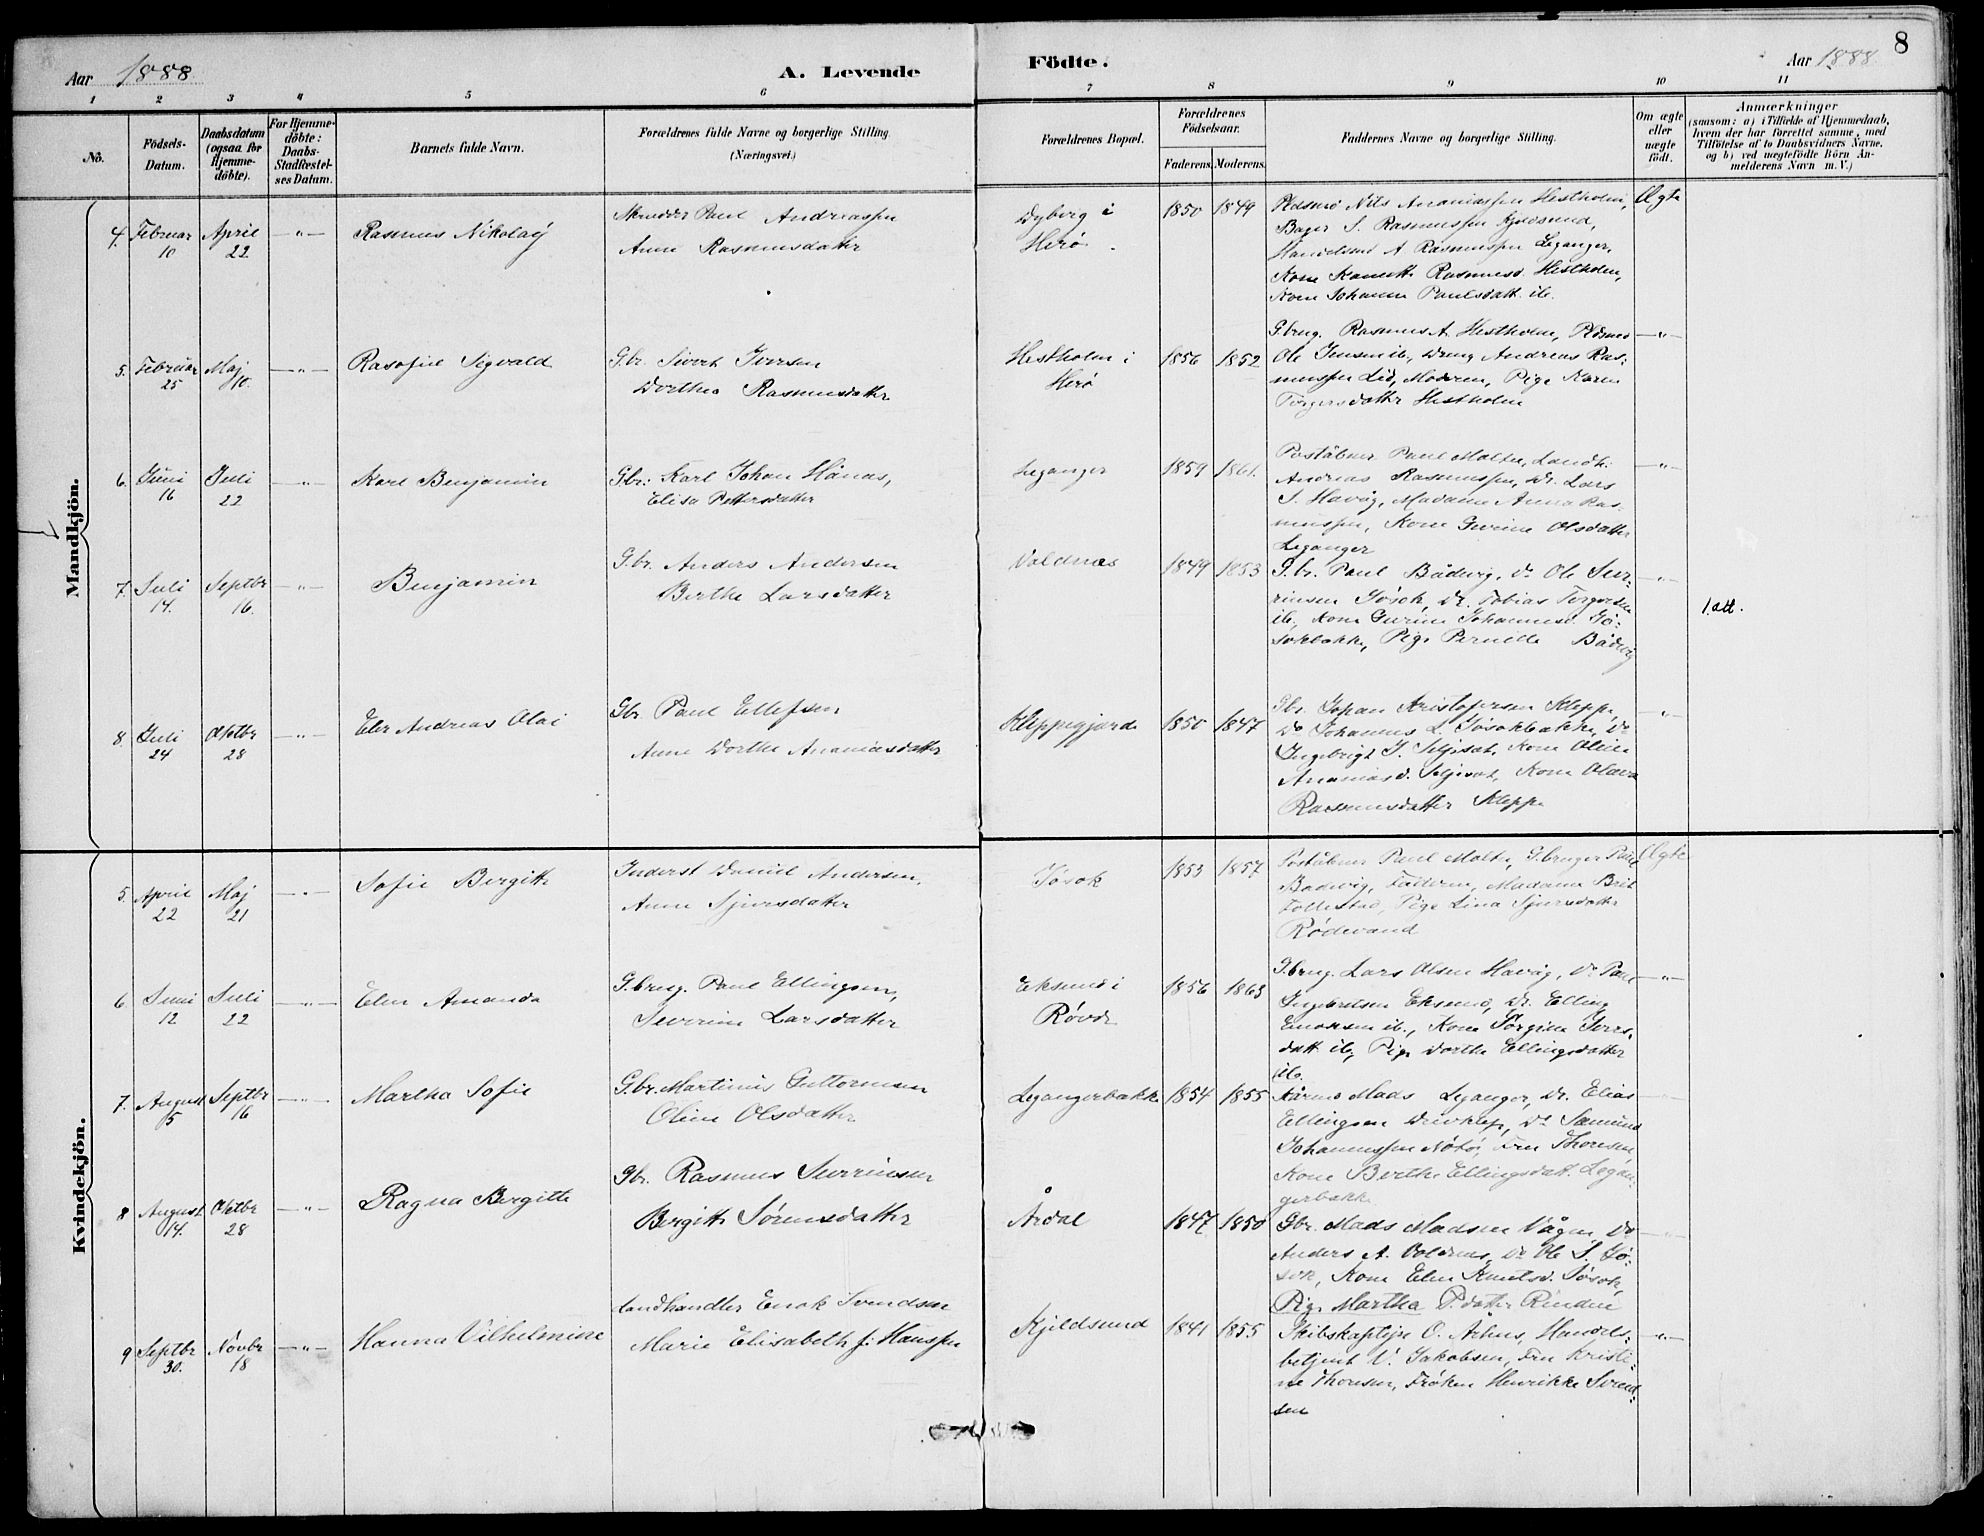 8
Aar 1888
A. Levende Födte.
Aar 1888.
1 2 3 4 5 6 7 8 9 10 11
No.
Födsels-
Datum.
Daabsdatum
(ogsaa for
Hjemme-
döbte).
For Hjemme-
döbte:
Daabs-
Stadfæstel-
ses Datum.
Barnets fulde Navn.
Forældrenes fulde Navne og borgerlige Stilling.
(Næringsvei.)
Forældrenes Bopæl.
Forældrenes
Födselsaar.
Faderens. Moderens.
Faddernes Navne og borgerlige Stilling.
Om ægte
eller
uægte
födt.
Anmærkninger
(saasom: a) i Tilfælde af Hjemmedaab,
hvem der har forrettet samme, med
Tilföielse af to Daabsvidners Navne,
og b) ved uægtefödte Börn An-
melderens Navn m. V.)
Mandkjön.
4. Februar 10 April 22 —"— Rasmus Nikolaÿ
Paul Andreassen
Anne Rasmusdatter
Dybvig i
Herø.
1850 1849
Nils Ananiassen Hestholm,
Bager S. Rasmussen Kjeldsund,
Handelsmd A Rasmussen Leganger,
Kone Rasmusd. Hestholm,
Kone Johanna Paulsdatt. ib.
Ægte
5. Februar 25 Maj 10. —"— Rasofie Sigvald
Gbr. Sivert Iversen
Dorthea Rasmusdatter
Hestholm i
Herø
1856 1852
Gbrug. Rasmus A. Hestholm,
Ole Jensen ib, Dreng Andreas Ras-
mussen Lid, Moderen, Pige Karen
Torgersdatter Hestholm
—"—
6. Juni 16 Juli 22 —"— Karl Benjamin
Gbr: Karl Johan Hånas,
Elisa Pettersdatter
Leganger
1859 1861.
Poståbner Paul Molte, Landh.
Andreas Rasmussen, Do. Lars
S. Havåg, Madame Anna Ras-
mussen, Kone Olsdatter
Leganger
—"—
7. Juli 14. Septbr 16. —"— Benjamin
G.br. Anders Andersen
Berthe Larsdatter
Voldnæs
1849 1853
G.br. Paul Bådvig, Do Ole Sev-
rinsen Jøsok, Do. Tobias Torgersen
ib, Kone Gurine Johannesd. Jø-
sokbakke, Pige Pernelle Bådvig
—"—
1.att.
8. Juli 24 Oktbr 28 —"— Eler Andreas Olai
Gbr. Paul Ellefsen
Anne Dorthe Ananiasdatter
Kleppegjerde
1850 1847
Gbr. Johan Kristofersen Kleppe,
Do Johannes L. Jøsokbakke, Do
Ingebrigt J. Seljeset, Kone Oline
Ananiasd. Seljeset, Kone Olava
Rasmusdatter Kleppe
—"—
Kvindekjön.
5. April 22 Maj 21 —"— Sofie Bergitte
Inderst Daniel Andersen,
Anne Sjursdatter
Jøsok
1853 1857
Poståbner Paul Molte, G.bruger Paul
Badvig, Faderen, Madame Brit
Follestad, Pige Lina Sjursdatter
Rødevand
Ægte
6 Juni 12 Juli 22 —"— Elen Amanda
G.brug. Paul Ellingsen,
Severine Larsdatter
Eksund i
Røvde
1856 1863
G.brug. Lars Olsen Havåg, Do Paul
Ingebrtsen Eksund, Do. Elling
Enoksen ib., Kone Ivers-
datt. ib, Pige Dorthe Ellingsdatter
ib.
—"—
7. August 5 Septbr 16 —"— Martha Sofie
G.br. Martinus Guttormsen
Oline Olsdatter
Legangerbakke
1854 1855
Kårmd Mads Leganger, Do. Elias
Ellingsen Driveklep, Do Samund
Johannessen Nøtø, Fru Thoresen
Kone Berthe Ellingsdatt. Legan-
gerbakke
8 August 14. Oktbr 28 —"— Ragna Bergitte
Gbr. Rasmus Severinsen
Bergitte Sørensdatter
Årdal
1847 1850
Gbr. Mads Madsen Vågen, Do
Anders A. Voldnes, Do Ole S. Jø-
sok, Kone Elen Knutsd. Jøsok,
Pige Martha P.datter Rinden
9 Septbr 30. Novbr 18 —"— Hanna Vilhelmine
Landhandler Enok Svendsen
Marie Elisabeth f: Hanssen
Kjeldsund
1841 1855
Skibskaptejn O. Århus, Handels-
betjent V. Jakobsen, Fru Kristi-
ne Thoresen, Frøken Henrikke Svend-
sen
—"—